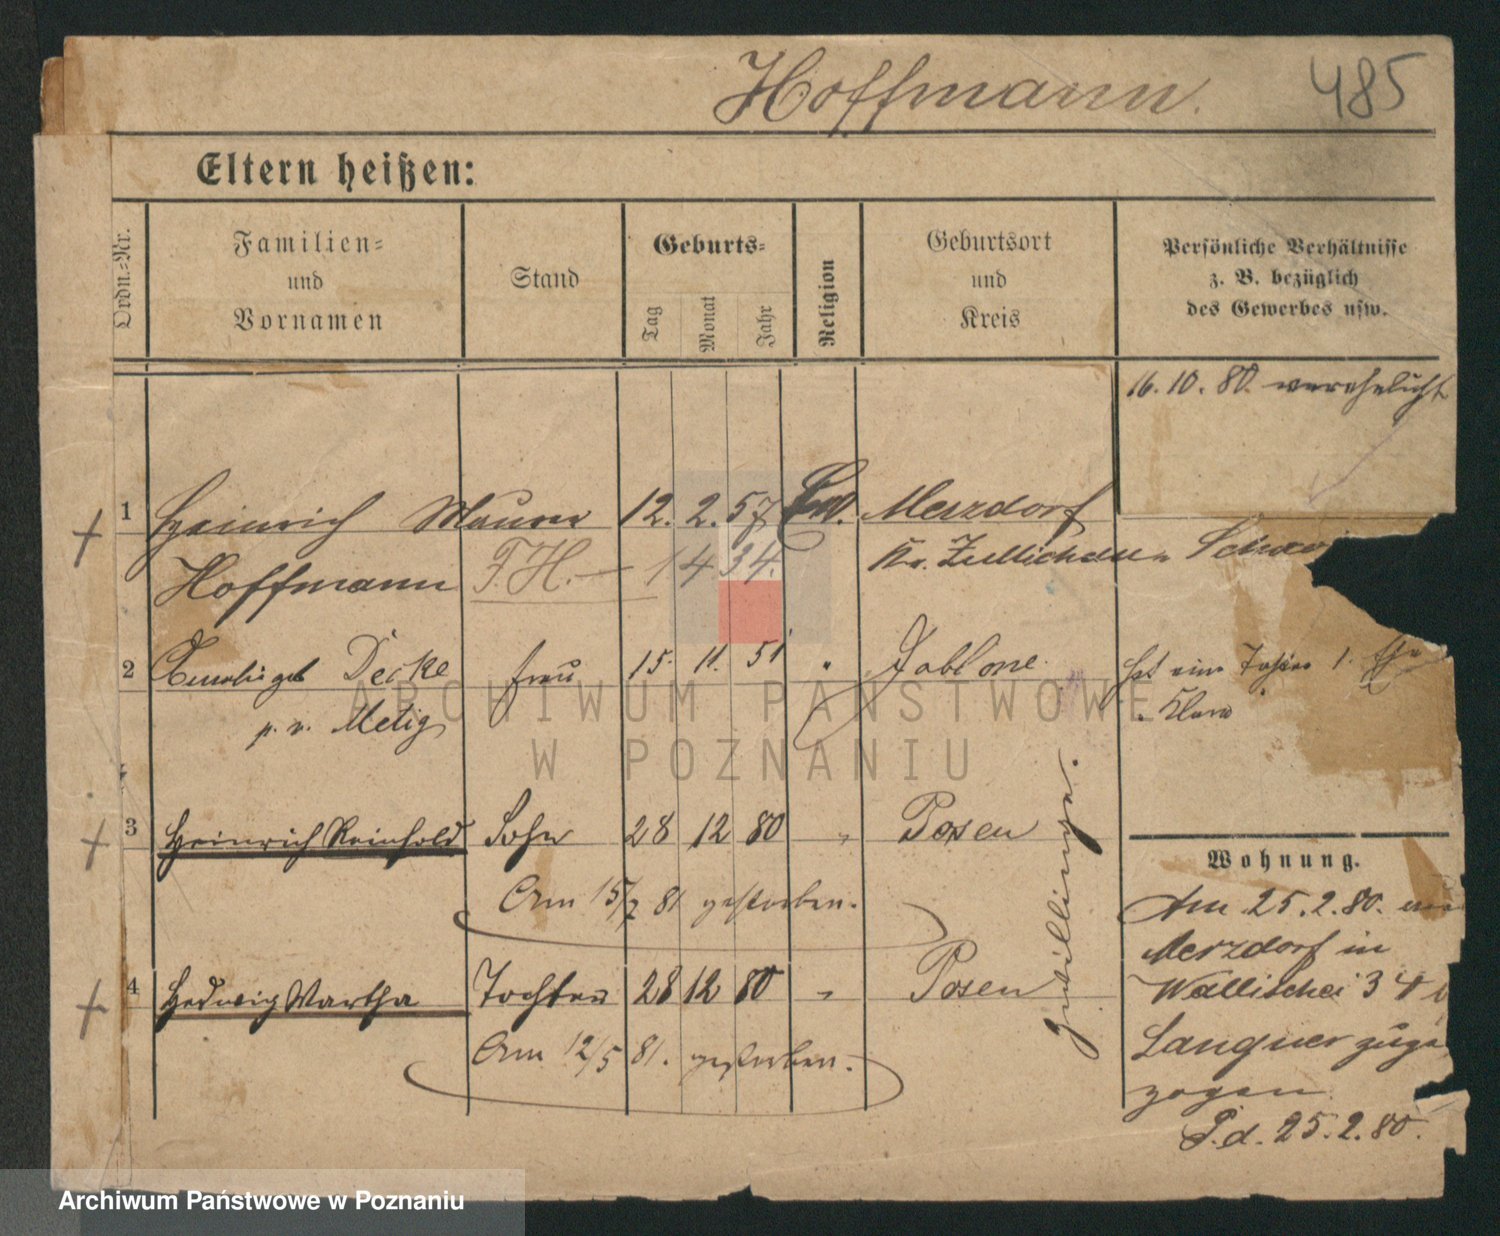 Hoffmann. 485
Eltern heißen:
Ordn.-Nr.
Familien-
und
Vornamen
Stand
Geburts-
Tag
Monat
Jahr
Religion
Geburtsort
und
Kreis
Persönliche Verhältnisse
z. B. bezüglich
des Gewerbes usw.
16. 10. 80. verehelicht
1 Heinrich Maurer 12. 2. 57 Ev. Merzdorf
Hoffmann F. H. — 1434. Kr. Züllichau
2 Decke Frau 15. 11. 51 " Jablone. hat eine 1. Ehe
p. v. Metig Klara
3 Heinrich Reinhold Sohn 28 12 80 " Posen
Am 15/7 81 gestorben.
4 Hedwig Martha Tochter 28 12 80 " Posen
Am 12/5 81. gestorben.
Zwillinge.
Wohnung.
Am 25. 2. 80. aus
Merzdorf in
Wallischei 34
Langner zuge
zogen
P. d. 25. 2. 80.
ARCHIWUM PAŃSTWOWE
W POZNANIU
Archiwum Państwowe w Poznaniu